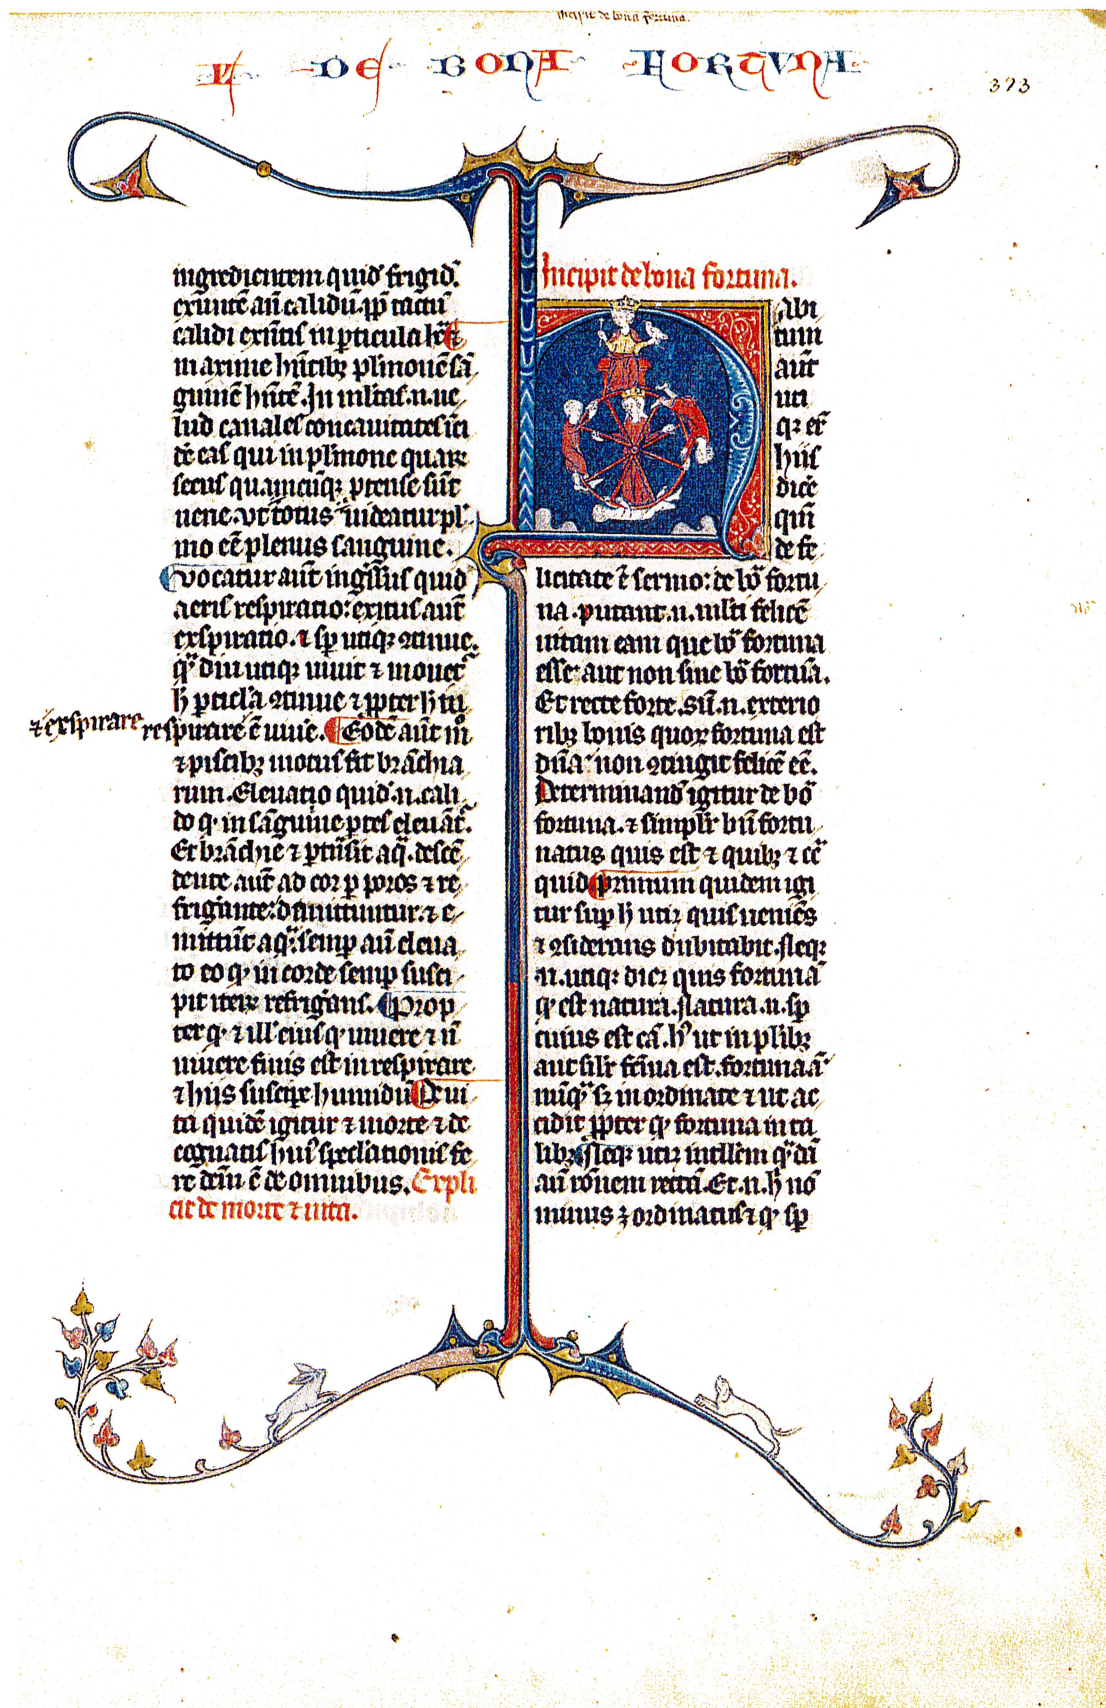 Incipit de bona fortuna.
L DE BONA FORTUNA
373
ingredientem quid̄ frigid̄.
exeuntē aū calidū. ꝓp̄ tactū
calidi exn̄tis in ꝑticula hāc
maxime hn̄tibꝫ pl̄monē sā
guinē hn̄tē. In ml̄tas .n. ue
lud canales concauitates
qui in pl̄mone quaꝝ
secus quamcūqꝫ ꝓtense sūt
uene. ut totus uideatur pl̄
mo eē plenus sanguine.
Vocatur aūt ingr̄ssus quid̄
aeris respiratio: exitus aūt
exspiratio. ⁊ sꝑ utiqꝫ ꝯtinue.
qᵃdiu utiqꝫ uiuit ⁊ mouet᷑
ħ ꝑticl̄a ꝯtinue ⁊ ꝓpter ħ in
⁊ exspirare respirare ē uiuē. Eodē aūt mō
⁊ piscibꝫ motus fit brāchia
rum. Eleuatio quid̄ .n. cali
do qͥ in sāguine ꝑtes eleuāt᷑.
Et brāchie ⁊ ꝑtūsit aqᵃ. descē
dente aūt ad cor ꝑ poros ⁊ re
frigāte: dimittuntur. ⁊ e
mittūt aqᵃ. semꝑ aū eleua
to eo qͥ in corde semꝑ susci
pit iteꝝ refrigās. Prop
ter qͩ ⁊ ill' eius qͩ uiuere ⁊ n̄
uiuere finis est in respirare
⁊ hiis suscipe humidū. De ui
ta quidē igitur ⁊ morte ⁊ de
cognatis huiꝰ specl̄ationis fe
re dcm̄ ē de omnibus. Expli
cit de morte ⁊ uita.
Incipit de bona fortuna.
Habi
tum
aūt
uti
qꝫ er̄
hiis
dicē
qm̄
de fe
licitate ē sermo: de bōᵃ fortu
na. putant .n. ml̄ti felicē
uitam eam que bōᵃ fortuna
esse: aut non sine bōᵃ fortūa.
Et recte forte. Sūt .n. exterio
ribꝫ bonis quoꝝ fortuna est
dn̄a: non ꝯtingit felicē eē.
Determinand̄ igitur de bōᵃ
fortuna. ⁊ simplr̄ bn̄ fortu
natus quis est ⁊ quibꝫ ⁊ cͥ
quid. Primum quidem igi
tur suꝑ ħ utiꝫ quis ueniēs
⁊ ꝯsiderans dubitabit. Neqꝫ
.n. utiqꝫ dicꝫ quis fortunā
qͩ est natura. Natura .n. sꝑ
cuius est cā. hͥ ut in pl̄ibꝫ
aut sil̄r fc̄tiua est. fortuna aū
nūqᵃ sꝫ inordinate ⁊ ut ac
cidit ꝓpter qͩ fortuna in ta
libꝫ. Neqꝫ utiꝫ intllēm qᵃdā
aū rōnem rectā. Et .n. ħ nō
minus ꝫ ordinatus ⁊ qͩ sꝑ